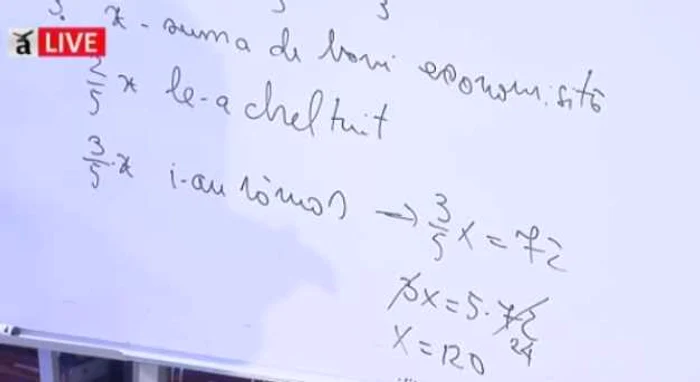 ă LIVE
3. x - suma de bani economisită
2/5 x le-a cheltuit
3/5 · x i-au rămas → 3/5 x = 72
3x = 5 · 72
24
x = 120